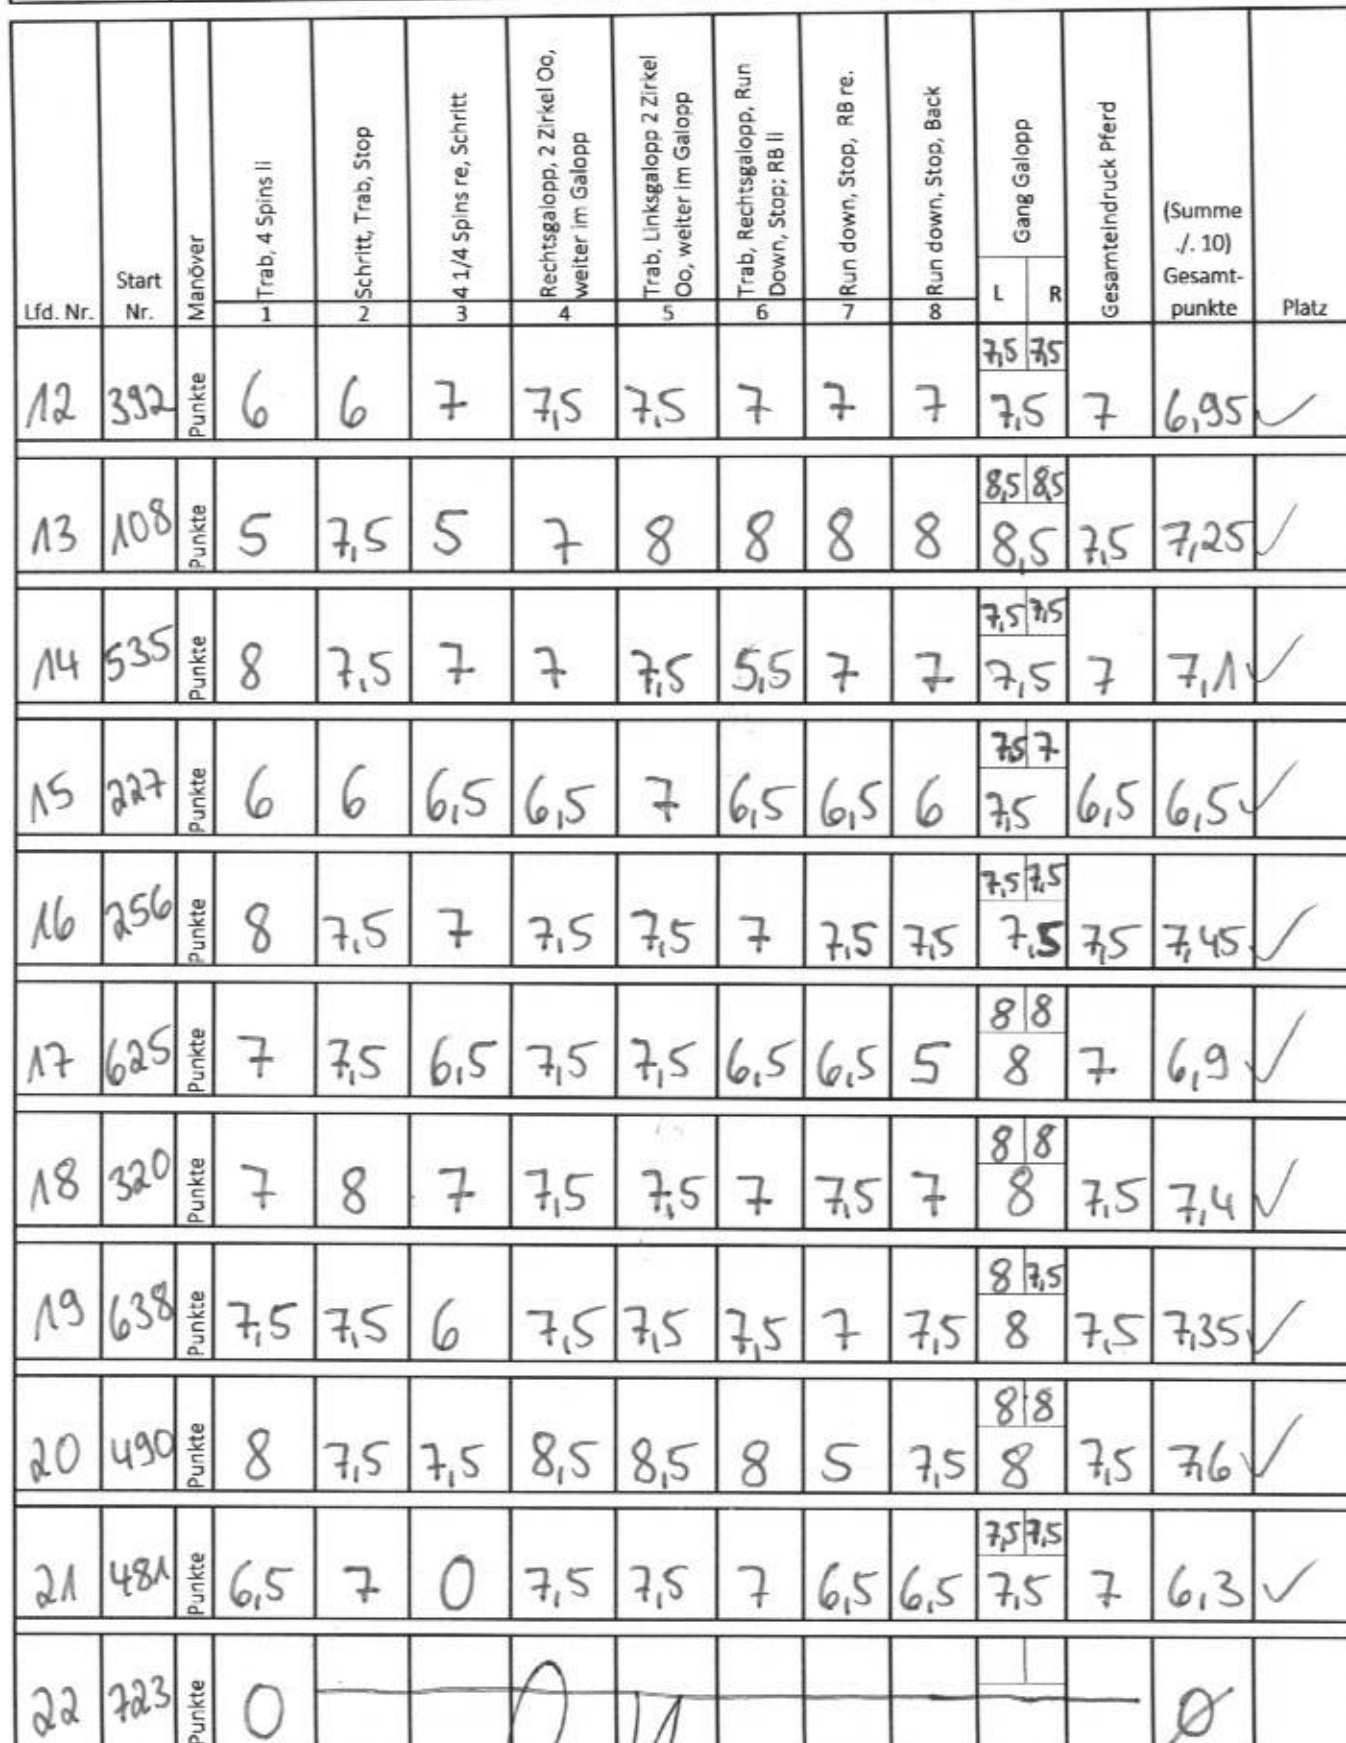 Lfd. Nr. Start Nr. Manöver Trab, 4 Spins li Schritt, Trab, Stop 4 1/4 Spins re, Schritt Rechtsgalopp, 2 Zirkel Oo, weiter im Galopp Trab, Linksgalopp 2 Zirkel Oo, weiter im Galopp Trab, Rechtsgalopp, Run Down, Stop; RB li Run down, Stop, RB re. Run down, Stop, Back Gang Galopp L R Gesamteindruck Pferd (Summe ./. 10) Gesamt-punkte Platz
1 2 3 4 5 6 7 8
7,5 7,5
12 392 Punkte 6 6 7 7,5 7,5 7 7 7 7,5 7 6,95 ✓
8,5 8,5
13 108 Punkte 5 7,5 5 7 8 8 8 8 8,5 7,5 7,25 ✓
7,5 7,5
14 535 Punkte 8 7,5 7 7 7,5 5,5 7 7 7,5 7 7,1 ✓
7,5 7
15 227 Punkte 6 6 6,5 6,5 7 6,5 6,5 6 7,5 6,5 6,5 ✓
7,5 7,5
16 256 Punkte 8 7,5 7 7,5 7,5 7 7,5 7,5 7,5 7,5 7,45 ✓
8 8
17 625 Punkte 7 7,5 6,5 7,5 7,5 6,5 6,5 5 8 7 6,9 ✓
8 8
18 320 Punkte 7 8 7 7,5 7,5 7 7,5 7 8 7,5 7,4 ✓
8 7,5
19 638 Punkte 7,5 7,5 6 7,5 7,5 7,5 7 7,5 8 7,5 7,35 ✓
8 8
20 490 Punkte 8 7,5 7,5 8,5 8,5 8 5 7,5 8 7,5 7,6 ✓
7,5 7,5
21 481 Punkte 6,5 7 0 7,5 7,5 7 6,5 6,5 7,5 7 6,3 ✓
22 723 Punkte 0 Ø